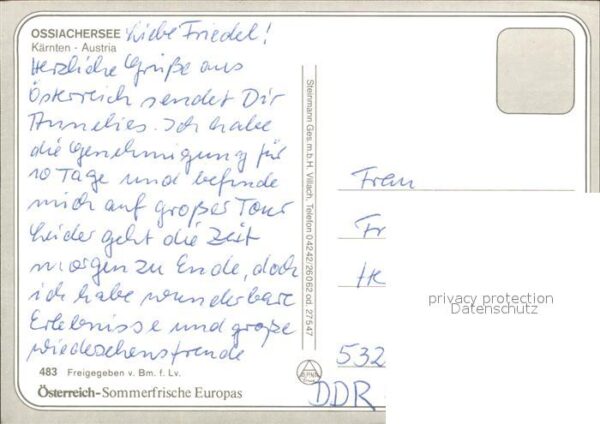 OSSIACHERSEE Liebe Friedel!
Kärnten - Austria
Herzliche Grüße aus
Österreich sendet Dir
Annelies. Ich habe
die Genehmigung für
10 Tage und befinde
mich auf großer Tour
Leider geht die Zeit
morgen zu Ende, doch
ich habe wunderbare
Erlebnisse und große
Wiedersehensfreude
483 Freigegeben v. Bm. f. Lv.
Österreich-Sommerfrische Europas
Steinmann Ges.m.b.H. Villach, Telefon 04242/26062 od. 27547
Frau
Fr
He
532
DDR
privacy protection
Datenschutz